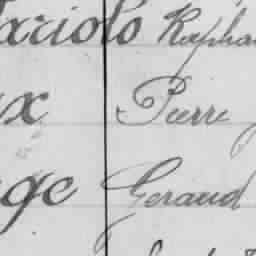 ariolo Rapha
x Pierre
ge Geraud